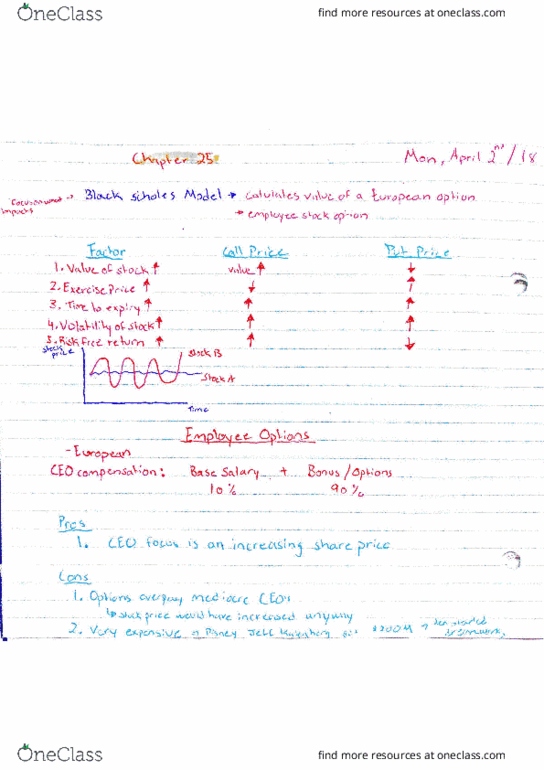 OneClass find more resources at oneclass.com
Chapter 25: Mon, April 2nd/18
focus on what impacts → Black scholes Model → calculates value of a European option
→ employee stock option
Factor Call Price Put Price
1. Value of stock ↑ value ↑ ↓
2. Exercise Price ↑ ↓ ↑
3. Time to expiry ↑ ↑ ↑
4. Volatility of stock ↑ ↑ ↑
5. Risk free return ↑ ↑ ↓
stock price
Stock B
Stock A
Time
Employee Options
- European
CEO compensation: Base Salary + Bonus/Options
10% 90%
Pros
1. CEO focus is on increasing share price
Cons
1. Options overpay mediocre CEOs
↳ stock price would have increased anyway
2. Very expensive → Disney Jeff got $200M → then started
OneClass find more resources at oneclass.com